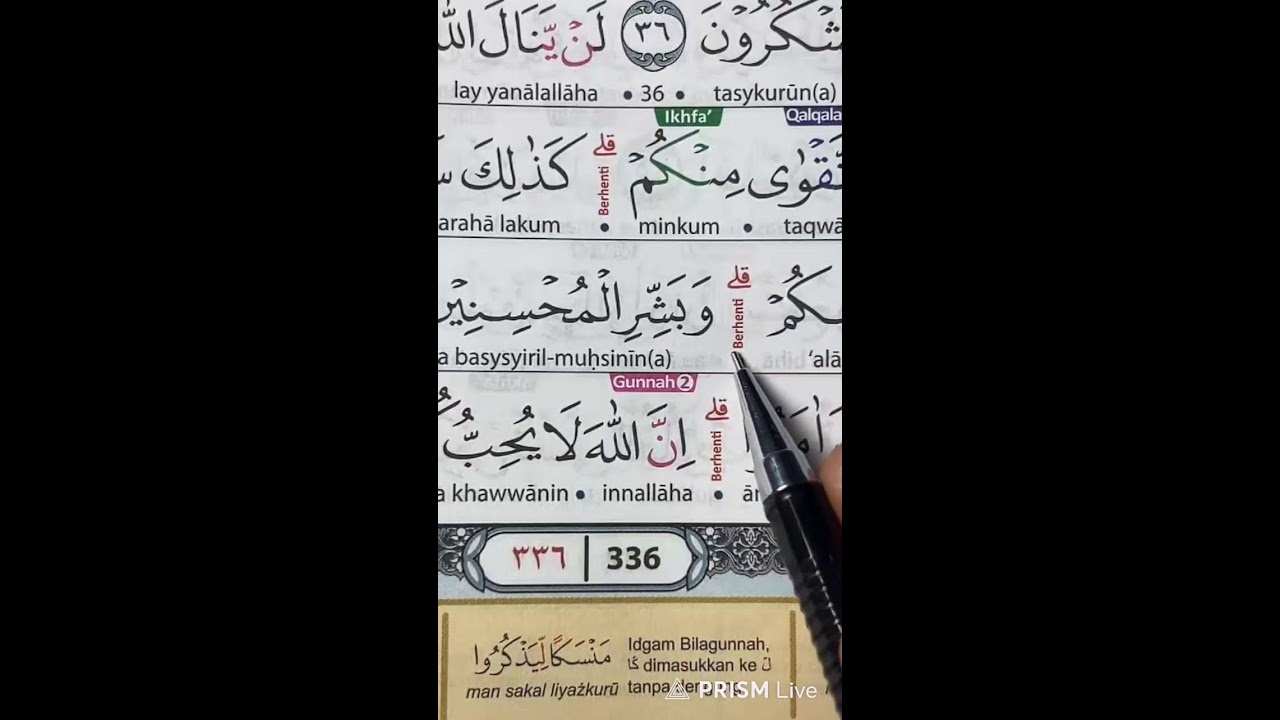 تَشْكُرُوْنَ ٣٦ لَنْ يَّنَالَ اللّٰهَ
lay yanālallāha • 36 • tasykurūn(a)
Ikhfa' Qalqala
مِنْكُمْۗ قلے كَذٰلِكَ
Berhenti
arahā lakum • minkum • taqwā
قلے وَبَشِّرِ الْمُحْسِنِيْنَ
Berhenti
a basysyiril-muḥsinīn(a) 'alā
Gunnah 2
قلے اِنَّ اللّٰهَ لَا يُحِبُّ
Berhenti
a khawwānin • innallāha •
٣٣٦ | 336
مَنْسَكًا لِّيَذْكُرُوا
man sakal liyażkurū
Idgam Bilagunnah,
كًا dimasukkan ke لّ
tanpa
PRISM Live